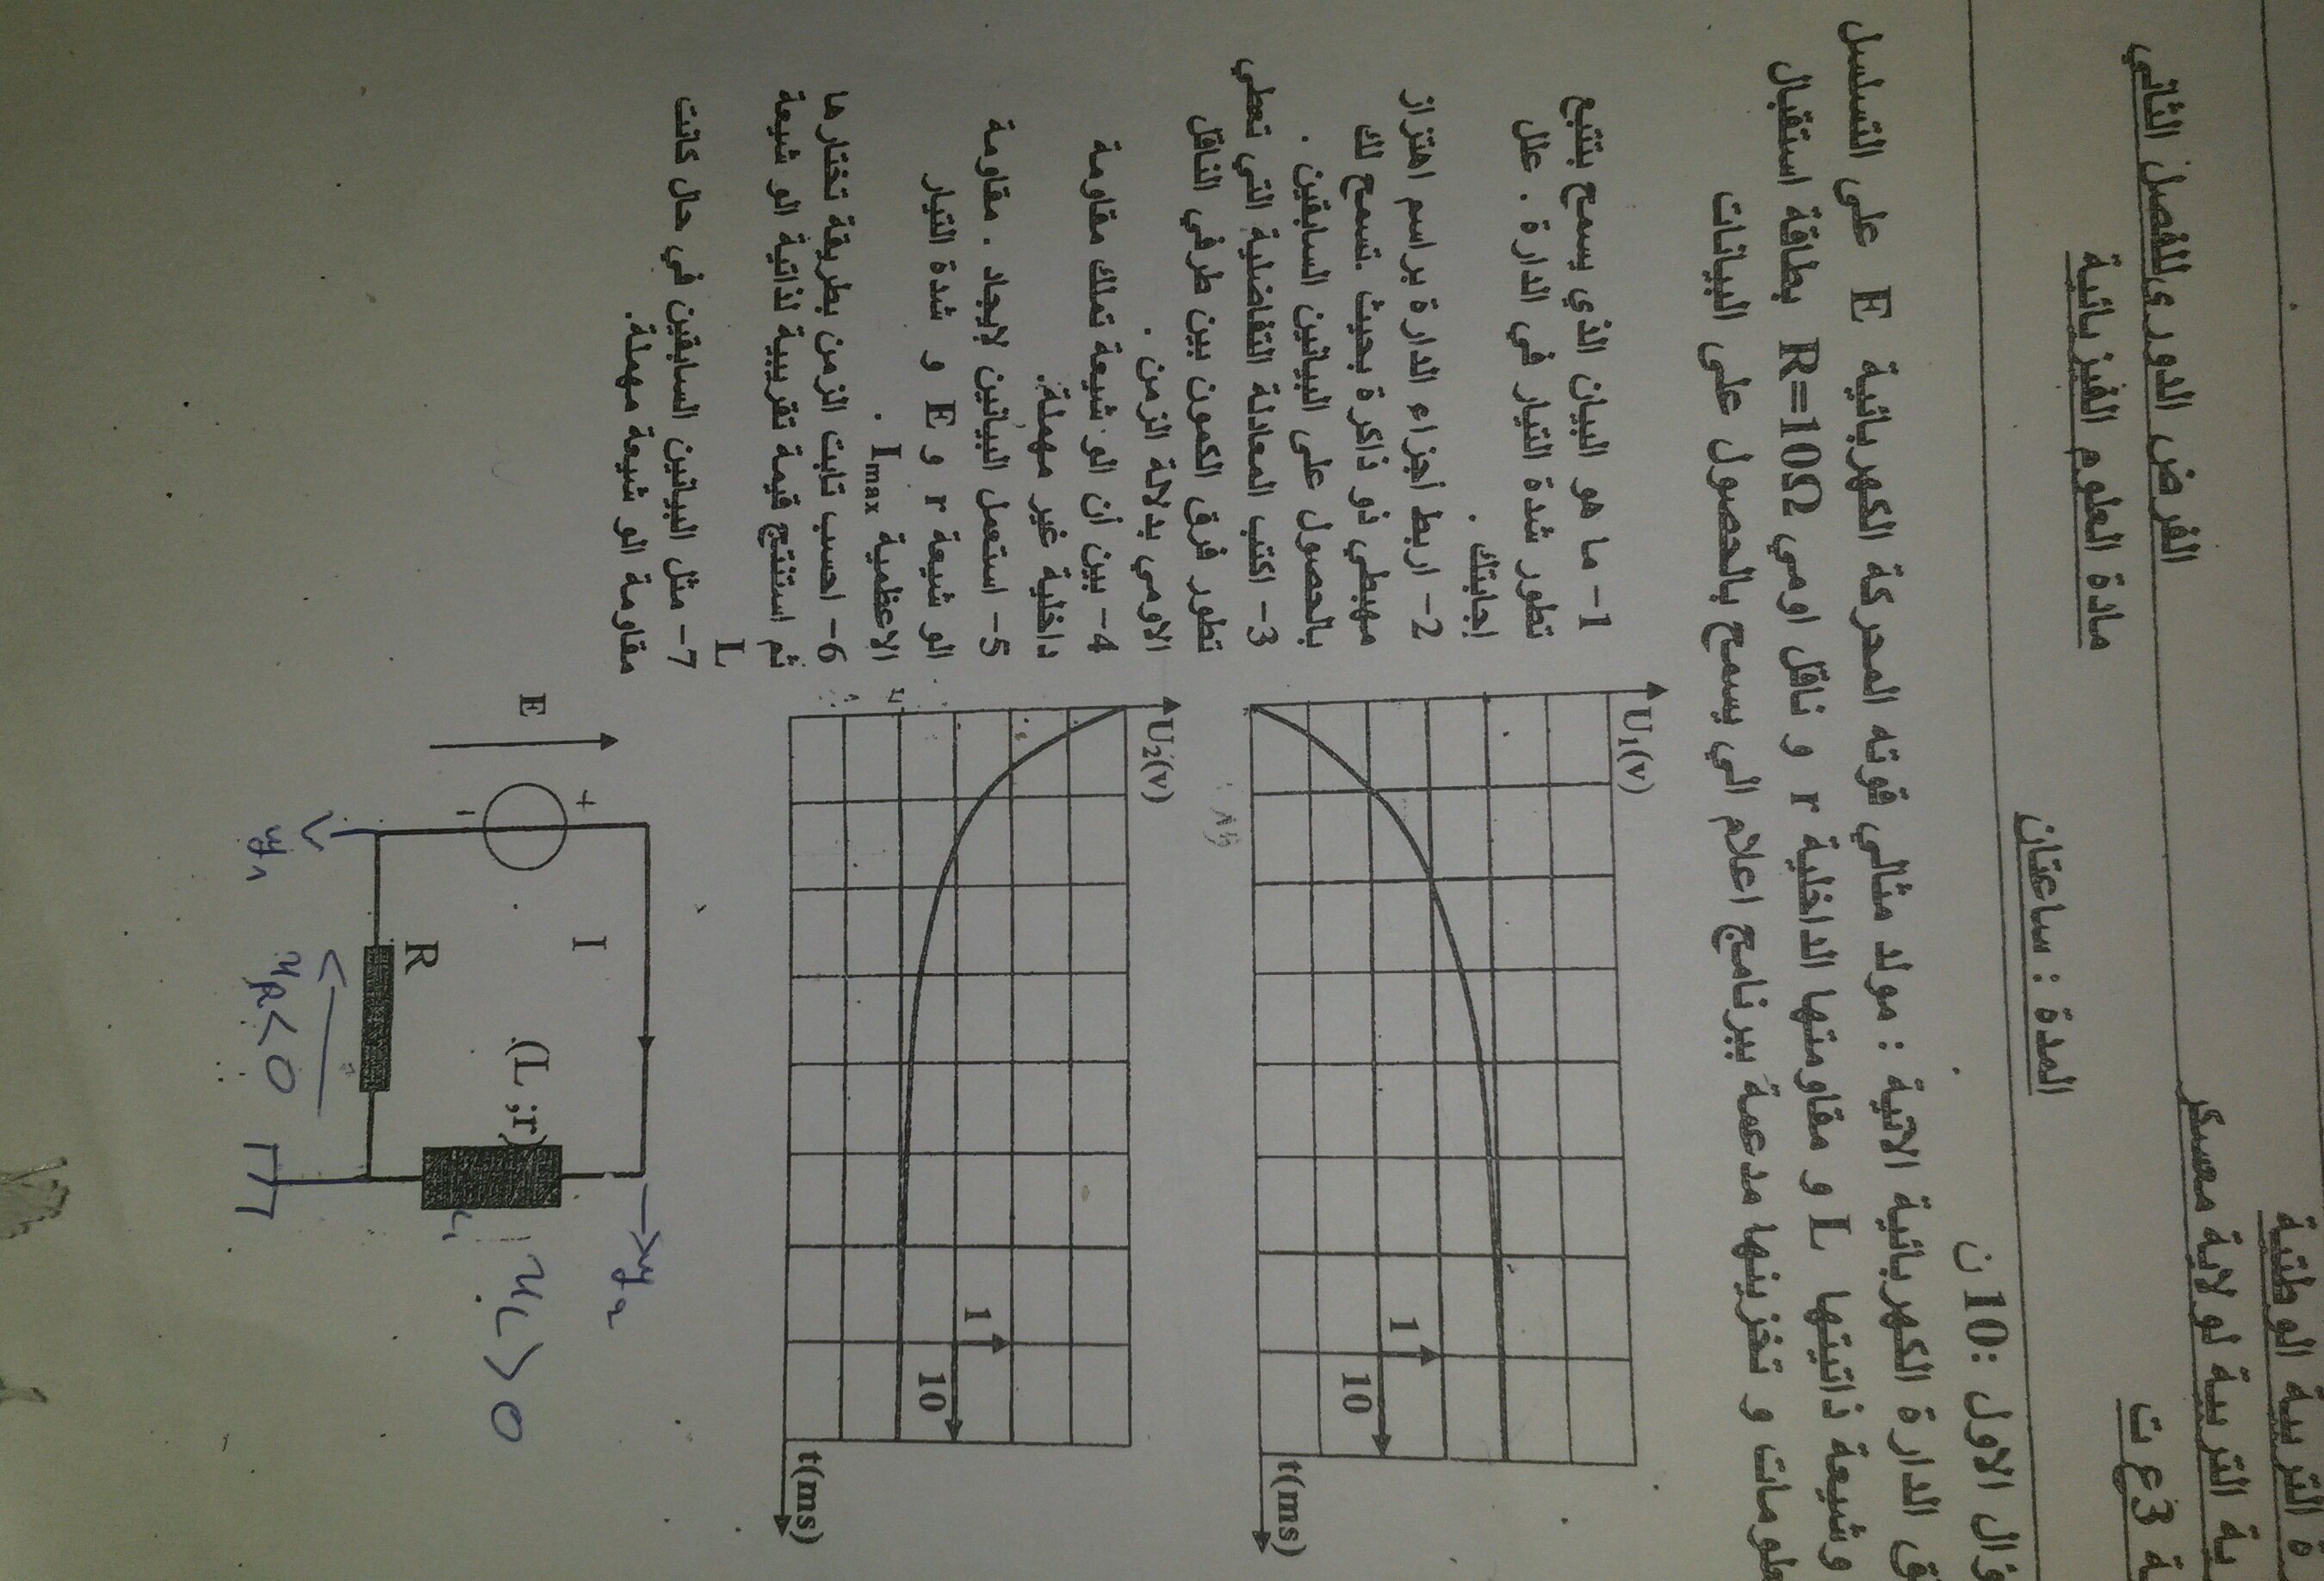 ة التربية الوطنية
ية التربية لولاية معسكر
ة 3ع ت
الفرض الدوري للفصل الثاني
مادة العلوم الفيزيائية
المدة : ساعتان
ؤال الاول :10 ن
ق الدارة الكهربائية الاتية : مولد مثالي قوته المحركة الكهربائية E على التسلسل
وشيعة ذاتيتها L و مقاومتها الداخلية r و ناقل اومي R=10Ω بطاقة استقبال
علومات و تخزينها مدعمة ببرنامج اعلام الي يسمح بالحصول على البيانات
1- ما هو البيان الذي يسمح بتتبع
تطور شدة التيار في الدارة . علل
إجابتك .
2- اربط اجزاء الدارة براسم اهتزاز
مهبطي ذو ذاكرة بحيث .تسمح لك
بالحصول على البيانين السابقين .
3- اكتب المعادلة التفاضلية التي تعطي
تطور فرق الكمون بين طرفي الناقل
الاومي بدلالة الزمن .
4- بين أن الوشيعة تملك مقاومة
داخلية غير مهملة.
5- استعمل البيانين لإيجاد . مقاومة
الوشيعة r و E و شدة التيار
الاعظمية Imax .
6- احسب ثابت الزمن بطريقة تختارها
ثم استنتج قيمة تقريبية لذاتية الوشيعة
L
7- مثل البيانين السابقين في حال كانت
مقاومة الوشيعة مهملة.
U1(v)
1
10
t(ms)
U2(v)
1
10
t(ms)
E
+
-
I
R
(L ;r)
y1
y2
uR<0
uL>0